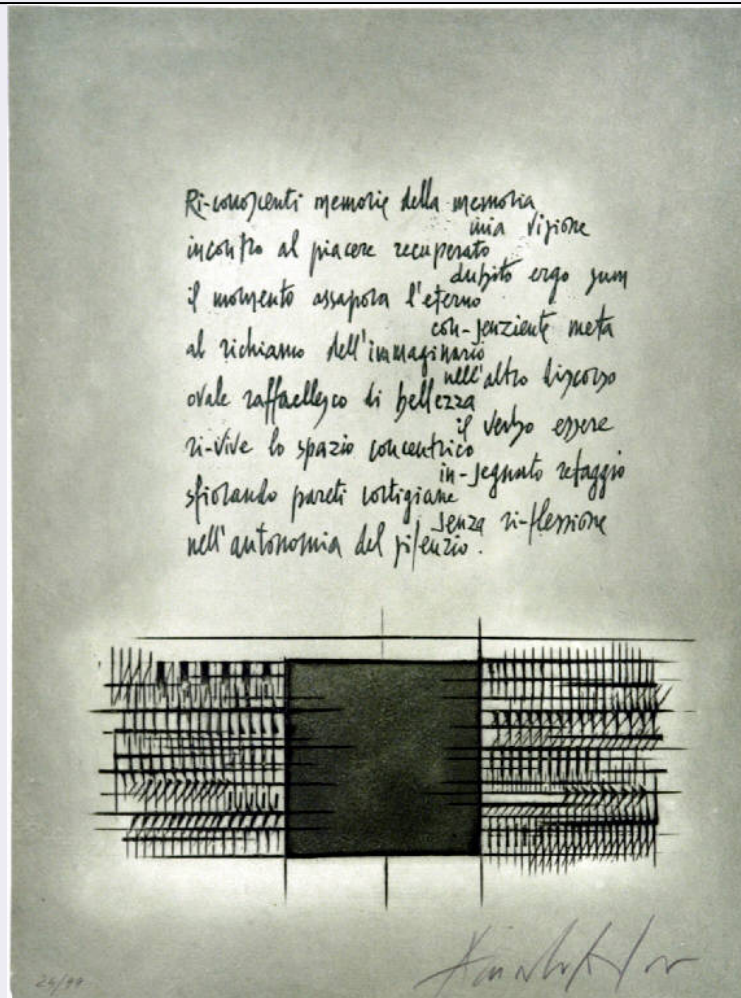 Ri-conoscenti memorie della memoria
mia visione
incontro al piacere recuperato
dubito ergo sum
il momento assapora l'eterno
con-senziente meta
al richiamo dell'immaginario
nell'altro discorso
ovale raffaellesco di bellezza
il verbo essere
ri-vive lo spazio concentrico
in-segnato retaggio
sfiorando pareti cortigiane
senza ri-flessione
nell'autonomia del silenzio.
24/99